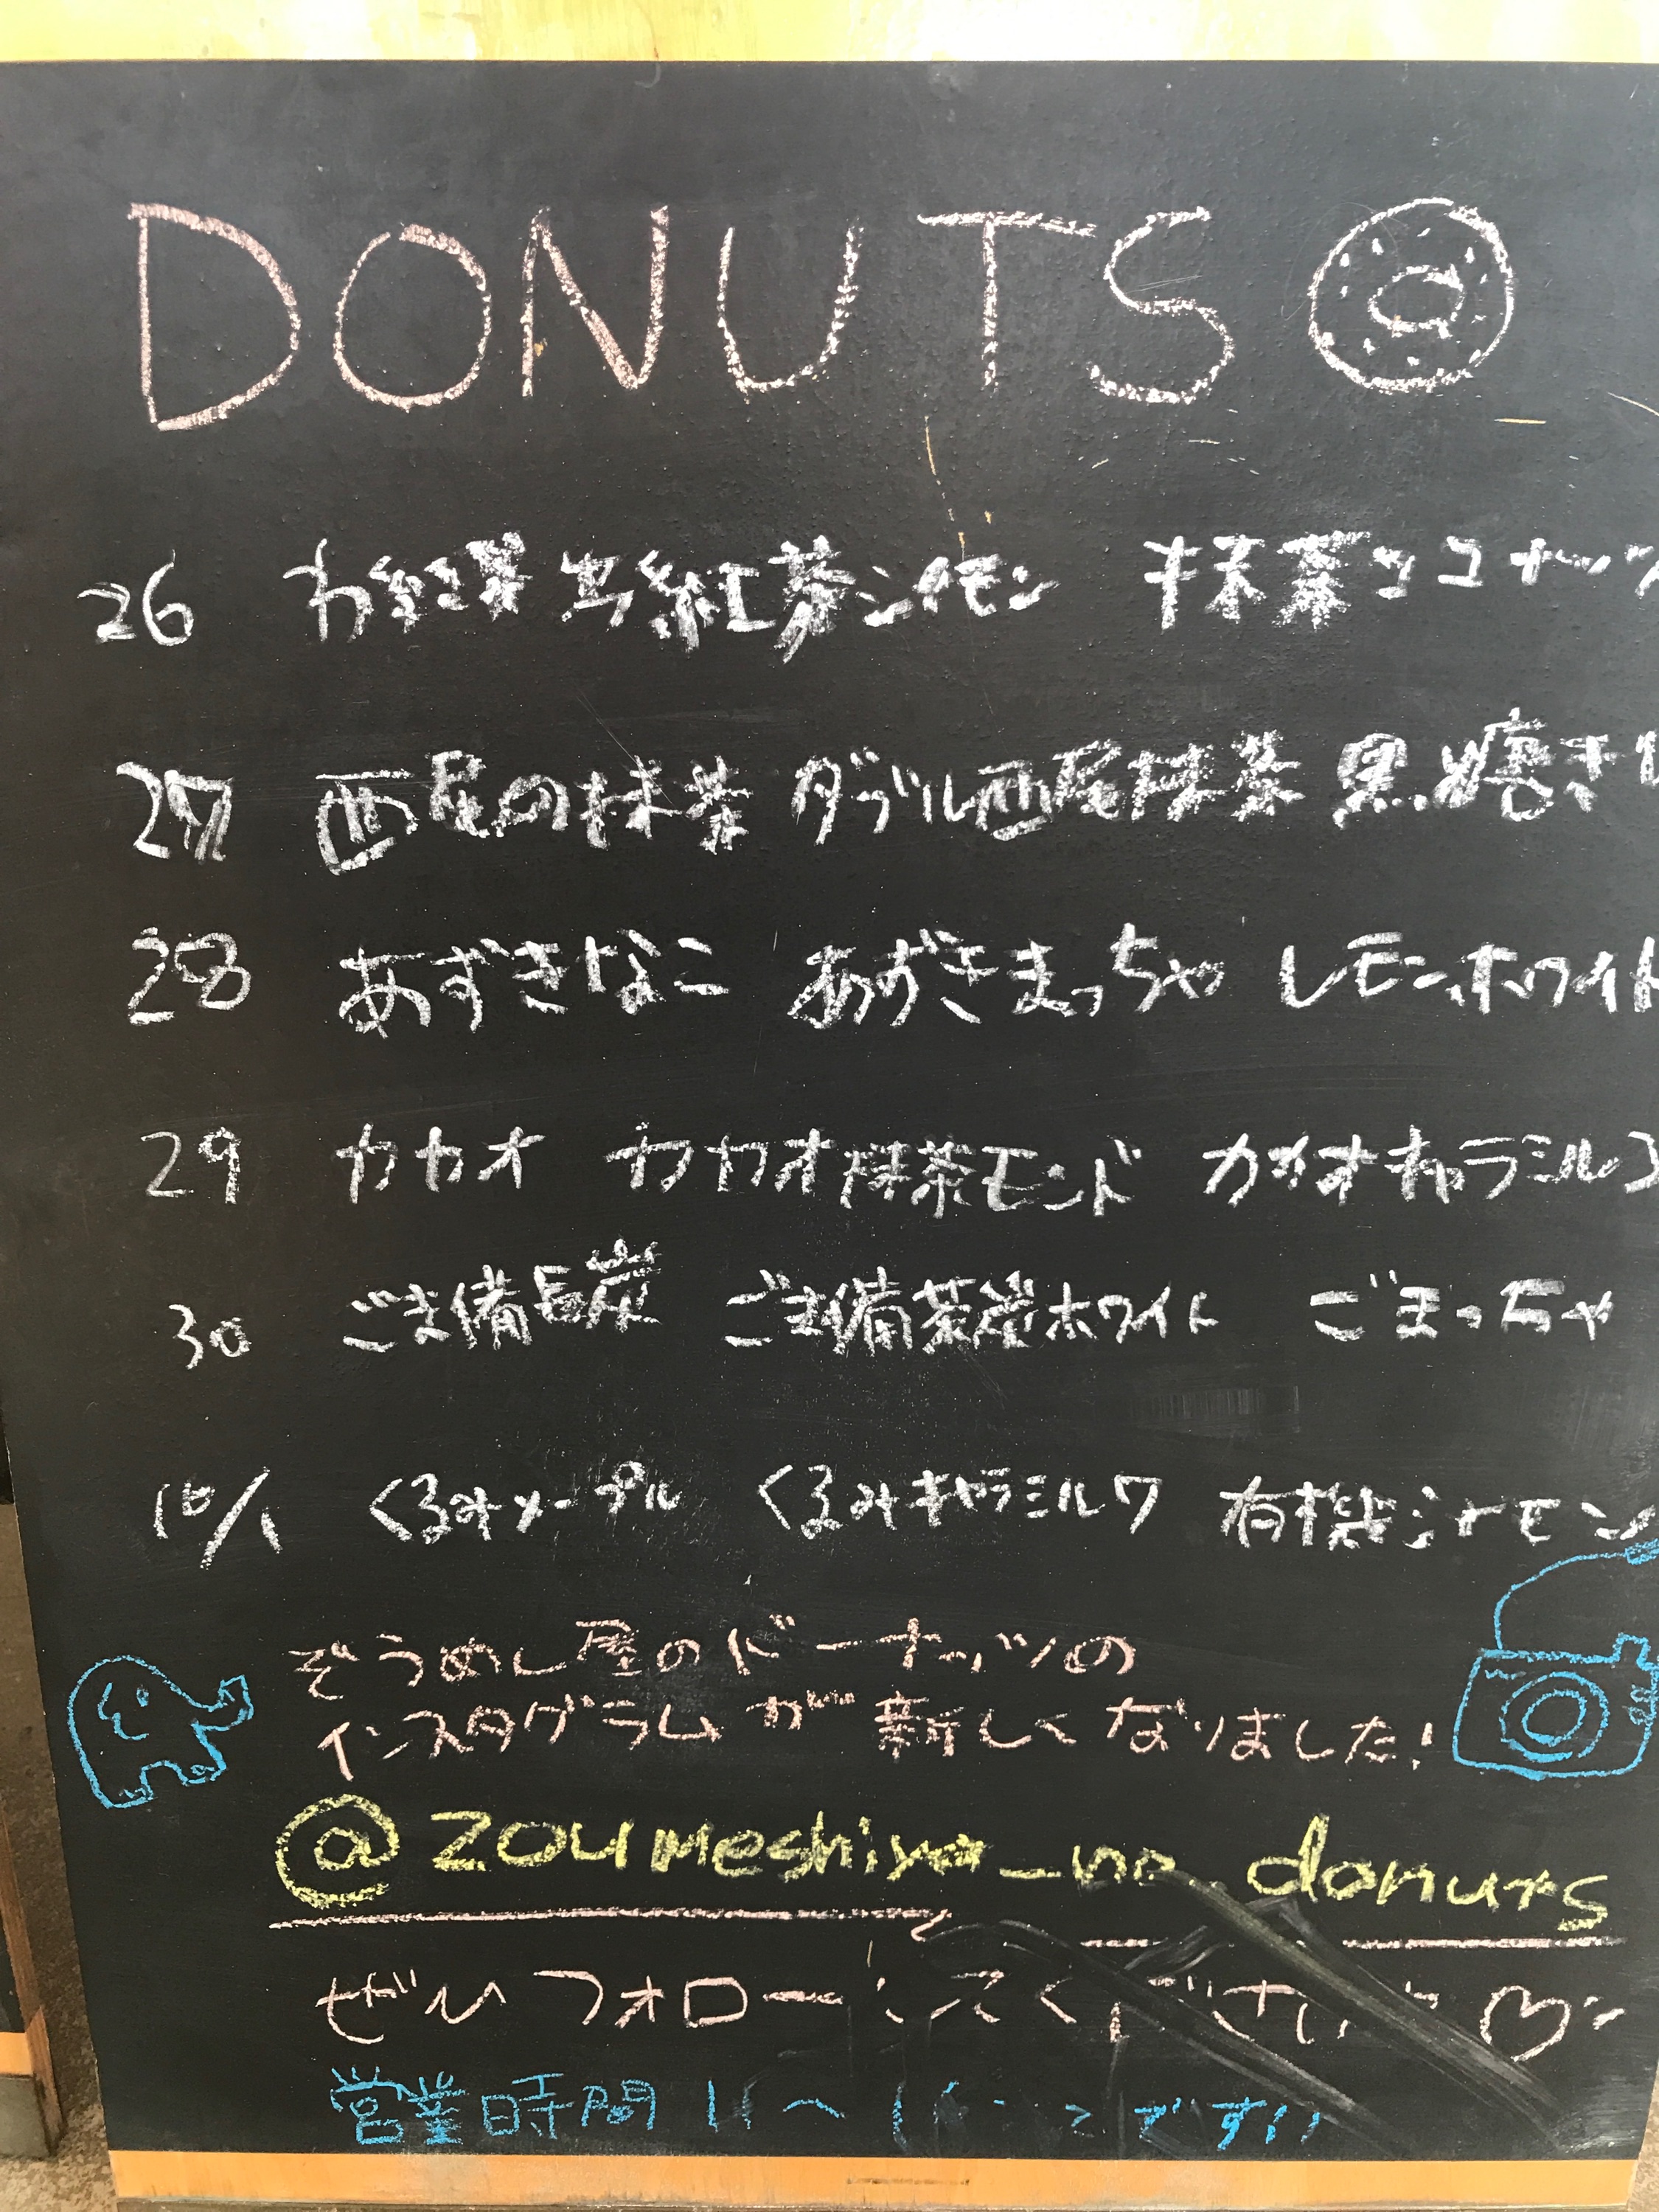 DONUTS
26 わ紅茶 紅茶シナモン 抹茶ココナッツ
27 西尾の抹茶 ダブル西尾抹茶 黒糖き
28 あずきなこ あずきまっちゃ レモンホワイト
29 カカオ カカオ抹茶モンド カカオキャラミル
30 ごま備長炭 ごま備茶炭ホワイト ごまっちゃ
10/1 くるみメープル くるみキャラミルク 有機シナモン
ぞうめし屋のドーナッツの
インスタグラムが新しくなりました!
@zoumeshiya_no_donuts
ぜひフォローしてください
営業時間 11〜 です!!